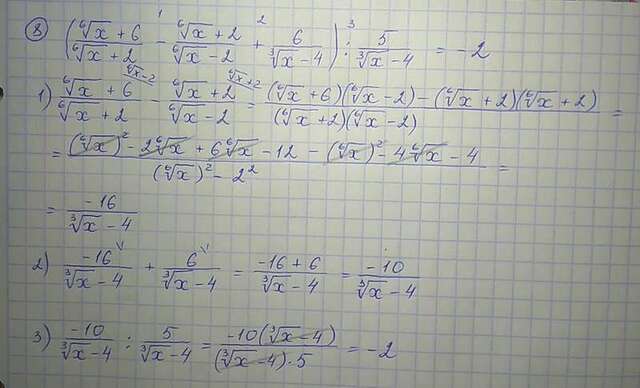 ⑧ ((⁶√x + 6)/(⁶√x + 2) −¹ (⁶√x + 2)/(⁶√x − 2) +² 6/(³√x − 4)) :³ 5/(³√x − 4) = −2
1) (⁶√x + 6)/(⁶√x + 2) \⁶√x−2 − (⁶√x + 2)/(⁶√x − 2) \⁶√x+2 = ((⁶√x + 6)(⁶√x − 2) − (⁶√x + 2)(⁶√x + 2))/((⁶√x + 2)(⁶√x − 2)) =
= ((⁶√x)² − 2⁶√x + 6⁶√x − 12 − (⁶√x)² − 4⁶√x − 4)/((⁶√x)² − 2²) =
= −16/(³√x − 4)
2) −16/(³√x − 4) \¹ + 6/(³√x − 4) \¹ = (−16 + 6)/(³√x − 4) = −10/(³√x − 4)
3) −10/(³√x − 4) : 5/(³√x − 4) = −10(³√x − 4)/((³√x − 4)·5) = −2